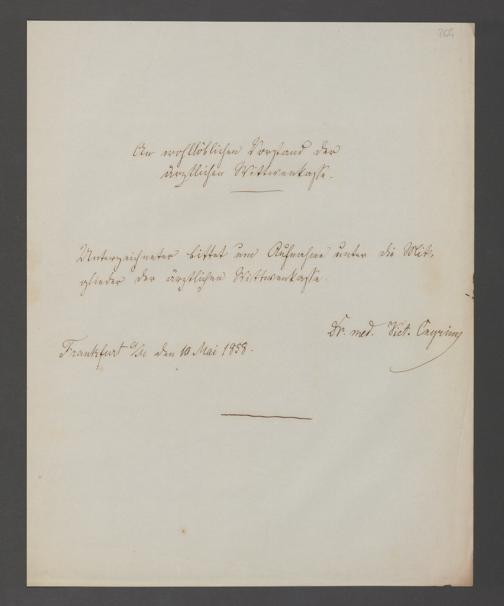 An wohllöblichen Vorstand der
ärztlichen Wittwenkasse.
Unterzeichneter bittet um Aufnahme unter die Mit-
glieder der ärztlichen Wittwenkasse.
Dr. med. Vict.
Frankfurt a/M den 10 Mai 1858.